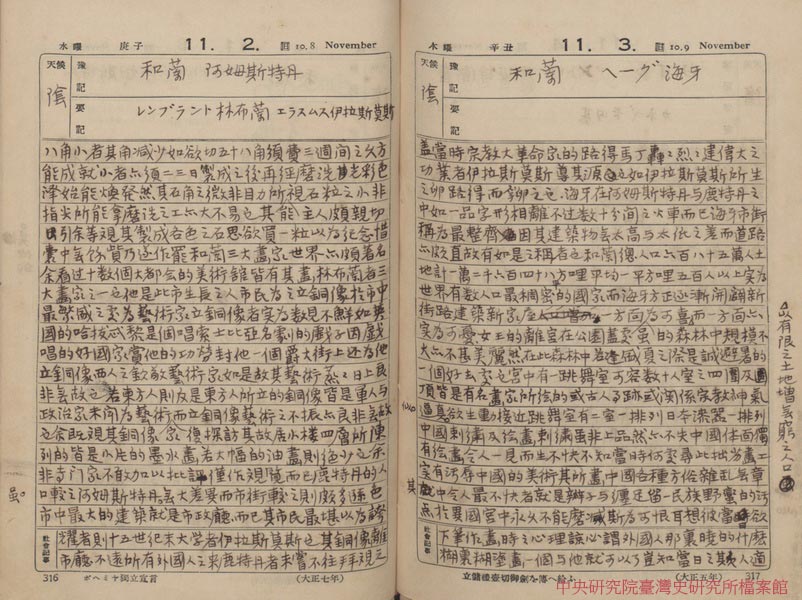 水曜 庚子 11. 2. 舊 10.8 November
天候 陰
豫記 和蘭 阿姆斯特丹
要記 レンブラント 林布蘭 エラスムス 伊拉斯莫斯
八角小者其角減少如欲切五十八角須費三週間之久方
能成就小者亦須二三日製成之後再經磨洗其光彩色
澤始能煥發然其石角之微非目力所視石粒之小非
指尖所能拿磨洗之工亦大不易也其能主人頗親切
引余等觀其製成各色之石思欲買一粒以為紀念惜
囊中羞澀買乃遂作罷和蘭三大畫家世界亦頗著名
余看过十数個大都会的美術舘皆有其畫林布蘭者三
大畫家之一也他是此市生長之人市民為之立銅像於市中
最榮盛之處為藝術家立銅像者实為数見不鮮如英
國的哈 黎是個唱索士比亞名劇的戲子因戲
唱的好國家嘗他的功勞封他一個爵大街上还為他
立銅像西人之欽敬藝術家如是故其藝術蒸々日上良
非無故也若東方人則反是東方人所立的銅像皆是軍人与
政治家未聞為藝術而立銅像藝術之不振亦良非無故
也余既視其銅像念復探訪其故居小樓四層所陳
列的皆是小片的墨水畫若大幅的油畫則絕少也余
非專门家不敢加以批評僅作觀覽而已鹿特丹的人
口較之阿姆斯特丹無大差異而市街較之則頗多遜色
市中最大的建築就是市政廳而已其市民最堪以為誇
社會記事 耀者則十五世紀末大学者伊拉斯莫斯也其銅像離
市廳不遠所有外國人之來鹿特丹者未嘗不往拜觀三
316 ボヘミヤ獨立宣言 (大正七年)
木曜 辛丑 11. 3. 舊 10.9 November
天候 陰
豫記 和蘭 ヘーグ 海牙
要記
蓋當時宗教大革命家的路得馬丁轟々烈々建偉大之
功業者伊拉斯莫斯導其源也如伊拉斯莫斯所生
之卵路得而孵之也海牙在阿姆斯特丹与鹿特丹之
中如一品字形相離不过数十分间之火車而已海牙市街
稱為最整齊因其建築物無太高与太低之差而道路
亦頗直故有如是之稱者也和蘭個人口六百八十五萬人土
地計一萬二千六百四十八方哩平均一平方哩五百人以上实為
世界有数人口最稠密的國家而海牙方正逐漸開闢新
街路建築新家屋一方面為可喜而一方面亦
实為可憂女王的離宮在公園蓋處的森林中規模不
大亦不甚美麗然在此森林中若逢盛夏之際是誠避暑的
一個好去処也宮中有一跳舞室可容数十人室之四圍及圓
頂皆是有名畫家所繪的或古人之跡或関係宗教神氣
逼真欲生動接近跳舞室有二室一排列日本漆器一排列
中國刺繡及絵畫刺繡虽非上品然亦不失中國体面獨
有絵畫令人一見而生不快不知當時何處尋此拙劣畫工
实有污辱中國的美術其所畫中國各種方俗雜乱無章
其中令人最不快者就是辮子与纏足留一民族野蠻的污
点於異國宮中永久不能磨滅斯為可恨耳想彼當時欲
社會記事 下筆作畫時之心理諒必謂外國人那裏曉的什麽
糊裏糊塗畫一個与他就可以了豈知當日之其人適
立儲禮壼切御劍を宮へ給ふ (大正五年) 317
以有限之土地增無窮之人口
中央研究院臺灣史研究所檔案館